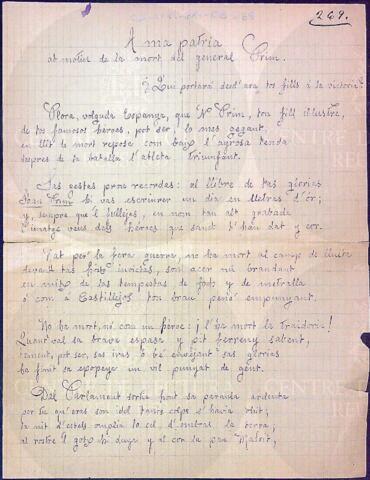 269.
A ma patria
at motiu de la mort del general Prim.
¿Qui portará desd'ara tos fills á la victoria?
Plora, volguda Espanya, que N' Prim, ton fill illustre,
de tos famosos héroes, pot ser, lo mes gegant,
en llit de mort reposa com baix l'ayrosa tenda
despres de la batalla l'atleta triunfant.
Sas gestas prou recordas: al llibre de tas glorias
Joan Prim hi vas escriurer un dia en lletras d'or;
y, sempre que'l fullejes, en mon tan alt gravada
l'imatge veus dels héroes que sanch t'han dat y cor.
Nat per la fera guerra, no ha mort al camp de lluita
devant tas invictas, son acer nú brandant
en mitx de las tempestas de foch y de metralla
ó com a Castillejos ton brau penó empunyant.
No ha mort, nó, com un héroe: ¡l'ha mort la traidoria!
Quant val sa brava espasa y pit ferreny sabent,
temut, pot ser, sas iras ó bé envejant sas glorias
ha finit sa epopeya un vol punyat de gent.
Del Parlament sortia hont sa paraula ardenta
per lo qu'eras son idol tants colps s'havia ohit;
la nit d'estels omplia lo cel, d'ombras la terra;
al rostre'l goig hi duya y al cor la pau Madrit,